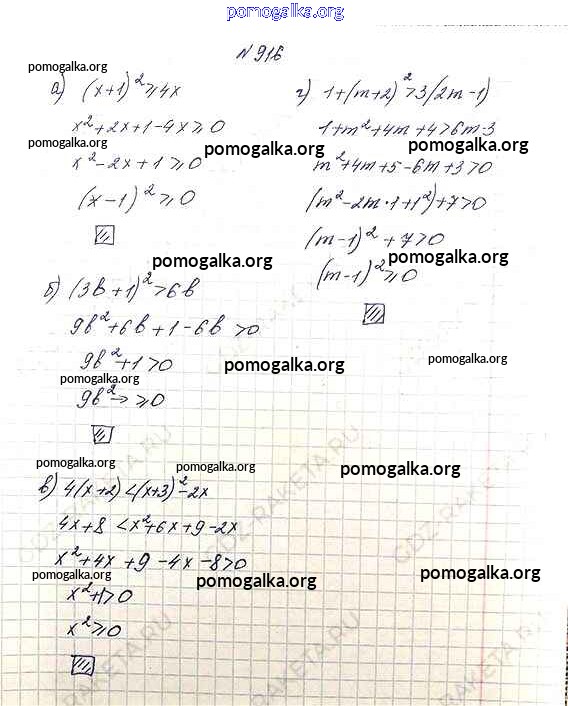 pomogalka.org
N 916
pomogalka.org
а) (x+1)² ⩾ 4x
x²+2x+1-4x ⩾ 0
pomogalka.org
x²-2x+1 ⩾ 0
(x-1)² ⩾ 0
pomogalka.org
г) 1+(m+2)² > 3(2m-1)
1+m²+4m+4 > 6m-3
pomogalka.org
pomogalka.org
m²+4m+5-6m+3 > 0
(m²-2m·1+1²)+7 > 0
(m-1)²+7 > 0
(m-1)² ⩾ 0
pomogalka.org
pomogalka.org
б) (3b+1)² > 6b
9b²+6b+1-6b > 0
9b²+1 > 0
pomogalka.org
pomogalka.org
pomogalka.org
9b² → ⩾ 0
pomogalka.org
pomogalka.org
pomogalka.org
в) 4(x+2) < (x+3)²-2x
4x+8 < x²+6x+9-2x
x²+4x+9-4x-8 > 0
pomogalka.org
pomogalka.org
pomogalka.org
x²+1 > 0
x² ⩾ 0
GDZ-RAKETA.RU
GDZ-RAKETA.RU
GDZ-RAKETA.RU